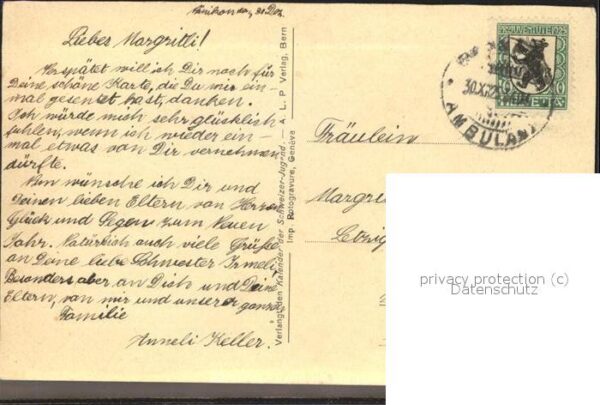 Liebes Margritli!
Verspätet will ich Dir noch für
Deine schöne Karte, die Du mir ein-
mal gesentet hast, danken.
Ich würde mich sehr glücklich
fühlen, wenn ich wieder ein-
mal etwas von Dir vernehmen
dürfte.
Nun wünsche ich Dir und
Deinen lieben Eltern von Herzen
Glück und Segen zum Neuen
Jahr. Natürlich auch viele Grüße
an Deine liebe Schwester Irmeli
Besonders aber an Dich und Deine
Eltern, von mir und unserer ganzen
Familie
Anneli Keller.
Verlangt den Kalender der Schweizer-Jugend – A. L. P. Verlag, Bern
Imp. Rotogravure, Genève
PRO JUVENTUTE 1925
HELVETIA
AMBULANT
Fräulein
Margrit
privacy protection (c)
Datenschutz